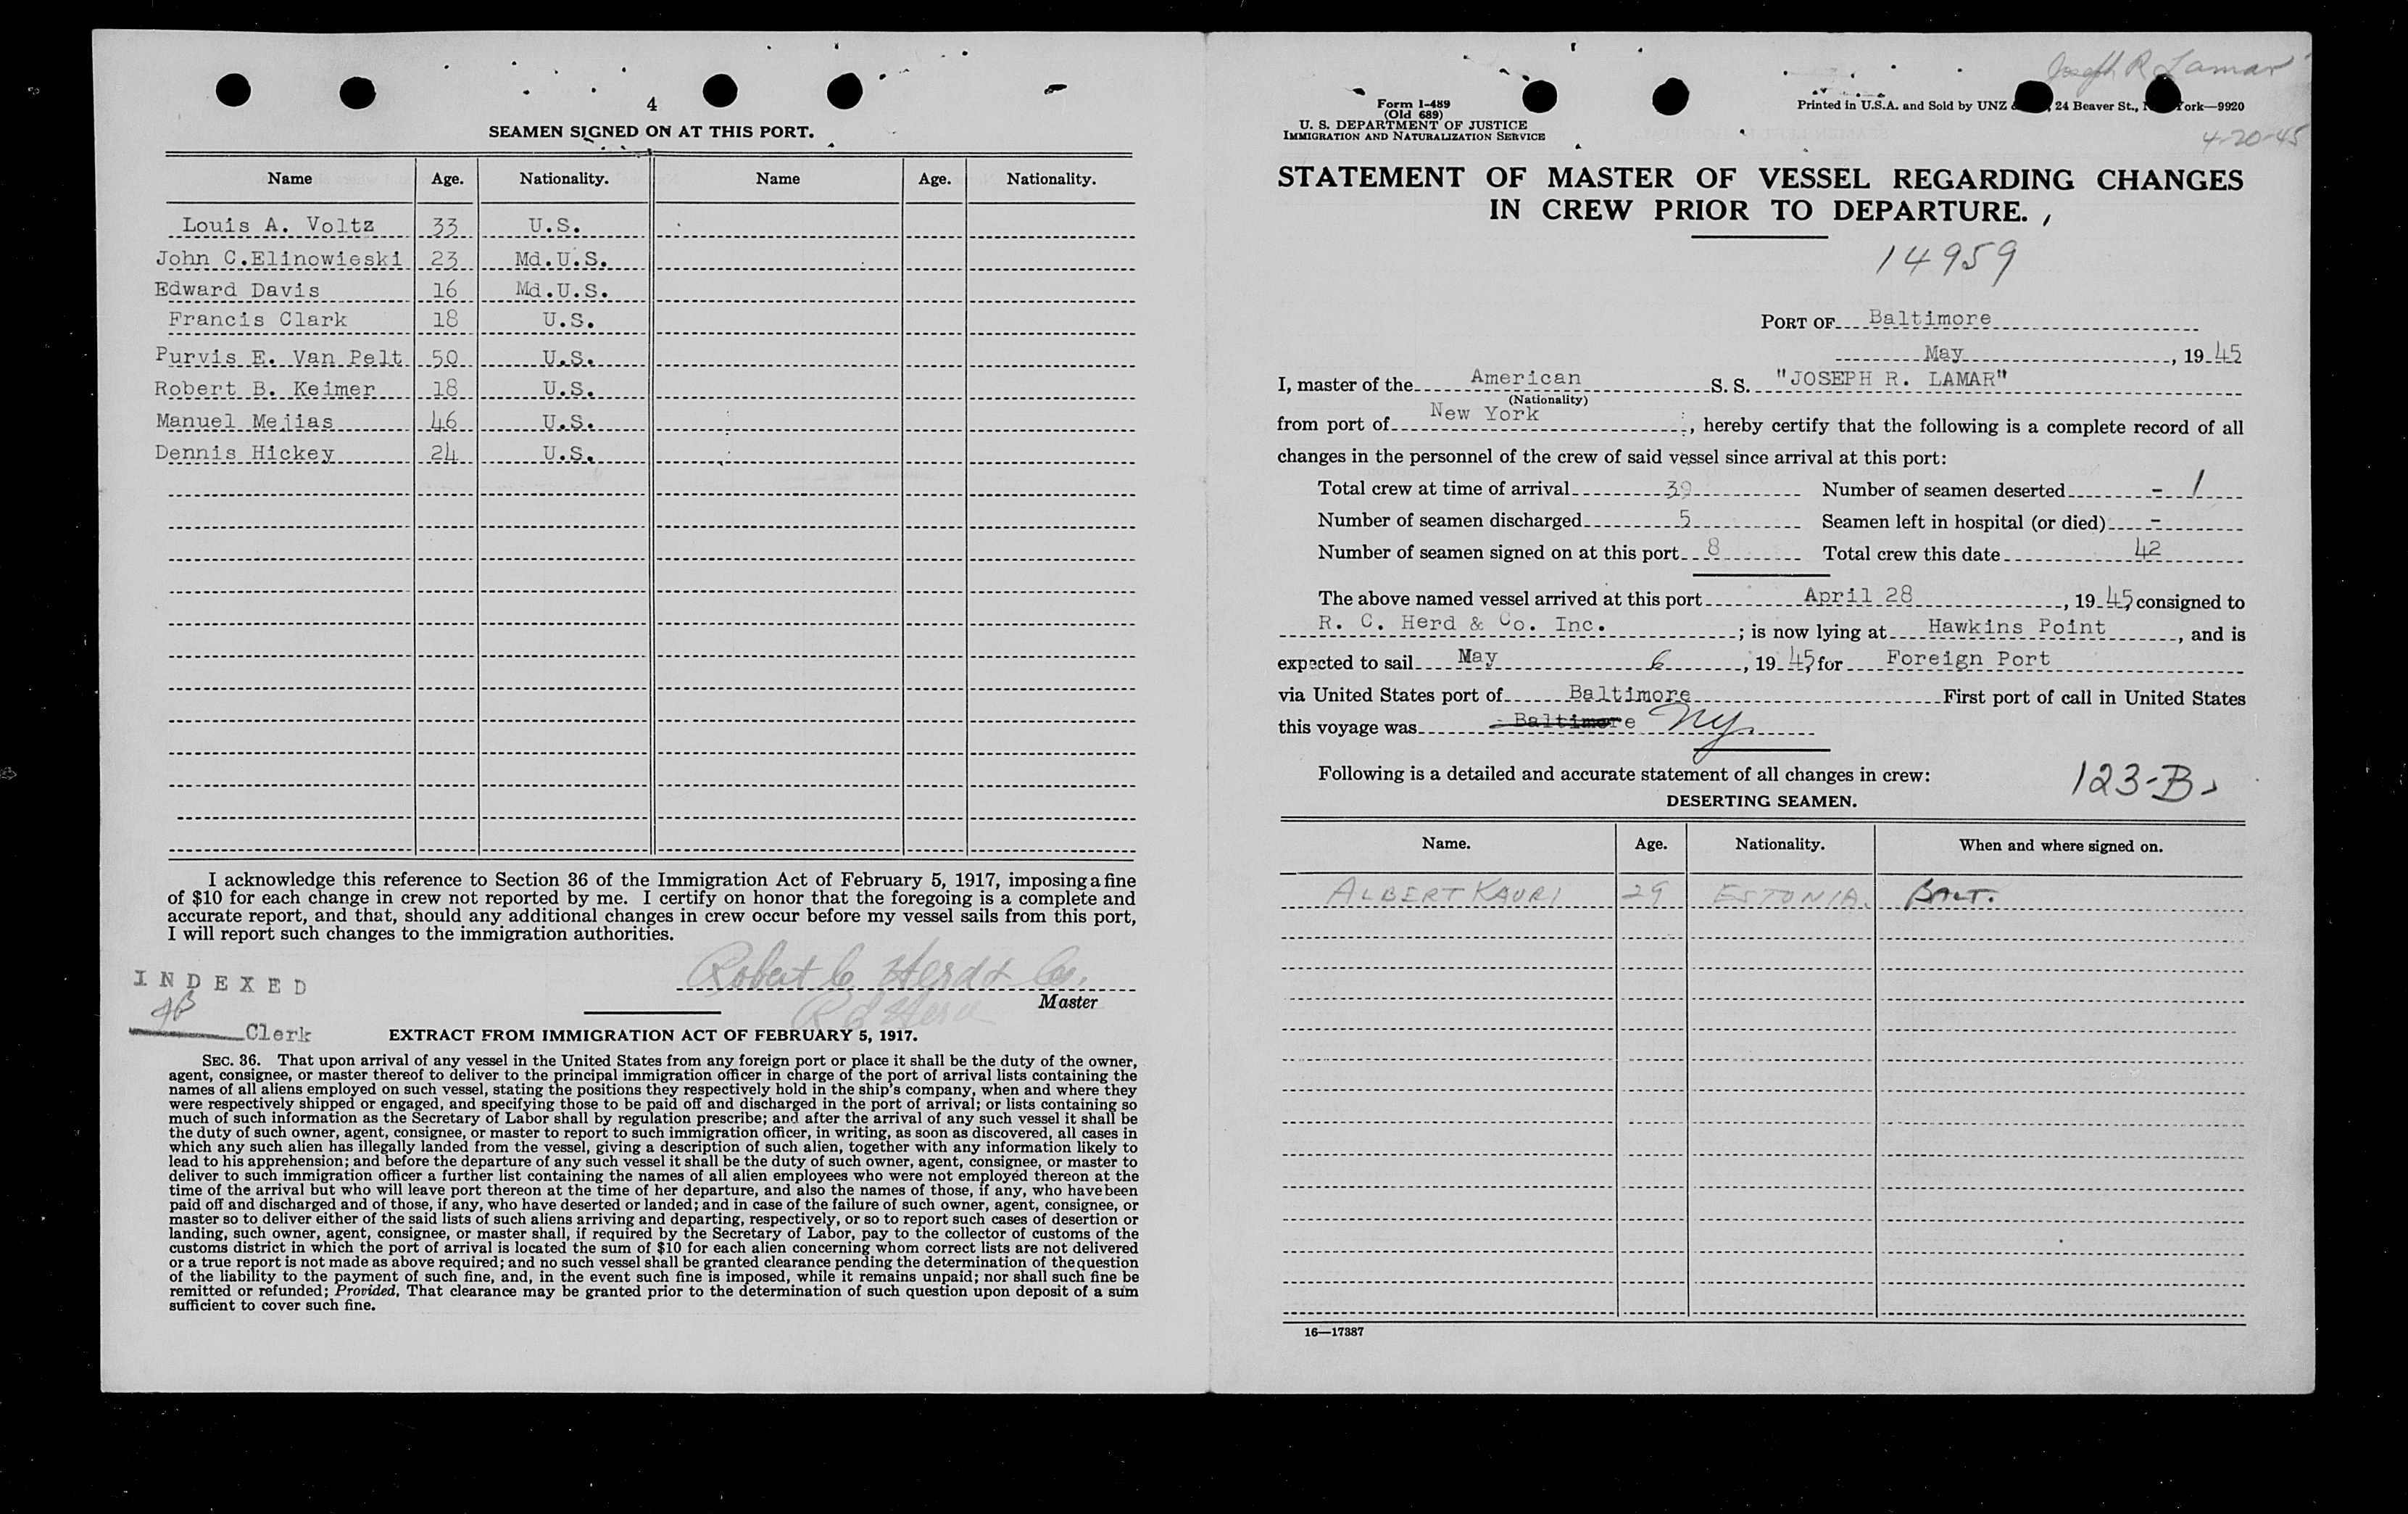 4
SEAMEN SIGNED ON AT THIS PORT.
Name Age. Nationality. Name Age. Nationality.
Louis A. Voltz 33 U.S.
John C.Elinowieski 23 Md.U.S.
Edward Davis 16 Md.U.S.
Francis Clark 18 U.S.
Purvis E. Van Pelt 50 U.S.
Robert B. Keimer 18 U.S.
Manuel Mejias 46 U.S.
Dennis Hickey 24 U.S.
I acknowledge this reference to Section 36 of the Immigration Act of February 5, 1917, imposing a fine
of $10 for each change in crew not reported by me. I certify on honor that the foregoing is a complete and
accurate report, and that, should any additional changes in crew occur before my vessel sails from this port,
I will report such changes to the immigration authorities.
Robert C Herd & Co.
INDEXED
Master
Clerk
EXTRACT FROM IMMIGRATION ACT OF FEBRUARY 5, 1917.
SEC. 36. That upon arrival of any vessel in the United States from any foreign port or place it shall be the duty of the owner,
agent, consignee, or master thereof to deliver to the principal immigration officer in charge of the port of arrival lists containing the
names of all aliens employed on such vessel, stating the positions they respectively hold in the ship's company, when and where they
were respectively shipped or engaged, and specifying those to be paid off and discharged in the port of arrival; or lists containing so
much of such information as the Secretary of Labor shall by regulation prescribe; and after the arrival of any such vessel it shall be
the duty of such owner, agent, consignee, or master to report to such immigration officer, in writing, as soon as discovered, all cases in
which any such alien has illegally landed from the vessel, giving a description of such alien, together with any information likely to
lead to his apprehension; and before the departure of any such vessel it shall be the duty of such owner, agent, consignee, or master to
deliver to such immigration officer a further list containing the names of all alien employees who were not employed thereon at the
time of the arrival but who will leave port thereon at the time of her departure, and also the names of those, if any, who have been
paid off and discharged and of those, if any, who have deserted or landed; and in case of the failure of such owner, agent, consignee, or
master so to deliver either of the said lists of such aliens arriving and departing, respectively, or so to report such cases of desertion or
landing, such owner, agent, consignee, or master shall, if required by the Secretary of Labor, pay to the collector of customs of the
customs district in which the port of arrival is located the sum of $10 for each alien concerning whom correct lists are not delivered
or a true report is not made as above required; and no such vessel shall be granted clearance pending the determination of the question
of the liability to the payment of such fine, and, in the event such fine is imposed, while it remains unpaid; nor shall such fine be
remitted or refunded; Provided, That clearance may be granted prior to the determination of such question upon deposit of a sum
sufficient to cover such fine.
Joseph R Lamar
Form I-489
(Old 689)
U. S. DEPARTMENT OF JUSTICE
IMMIGRATION AND NATURALIZATION SERVICE
Printed in U.S.A. and Sold by UNZ 24 Beaver St., ork—9920
4-20-45
STATEMENT OF MASTER OF VESSEL REGARDING CHANGES
IN CREW PRIOR TO DEPARTURE.
14959
PORT OF Baltimore
May, 19 45
I, master of the American S. S. "JOSEPH R. LAMAR"
(Nationality)
from port of New York, hereby certify that the following is a complete record of all
changes in the personnel of the crew of said vessel since arrival at this port:
Total crew at time of arrival 39 Number of seamen deserted - 1
Number of seamen discharged 5 Seamen left in hospital (or died) -
Number of seamen signed on at this port 8 Total crew this date 42
The above named vessel arrived at this port April 28, 19 45 consigned to
R. C. Herd & Co. Inc.; is now lying at Hawkins Point, and is
expected to sail May 6, 19 45, for Foreign Port
via United States port of Baltimore First port of call in United States
this voyage was Baltimore NY.
Following is a detailed and accurate statement of all changes in crew:
123-B
DESERTING SEAMEN.
Name. Age. Nationality. When and where signed on.
ALBERT KAURI 29 ESTONIA. BALT.
16—17387